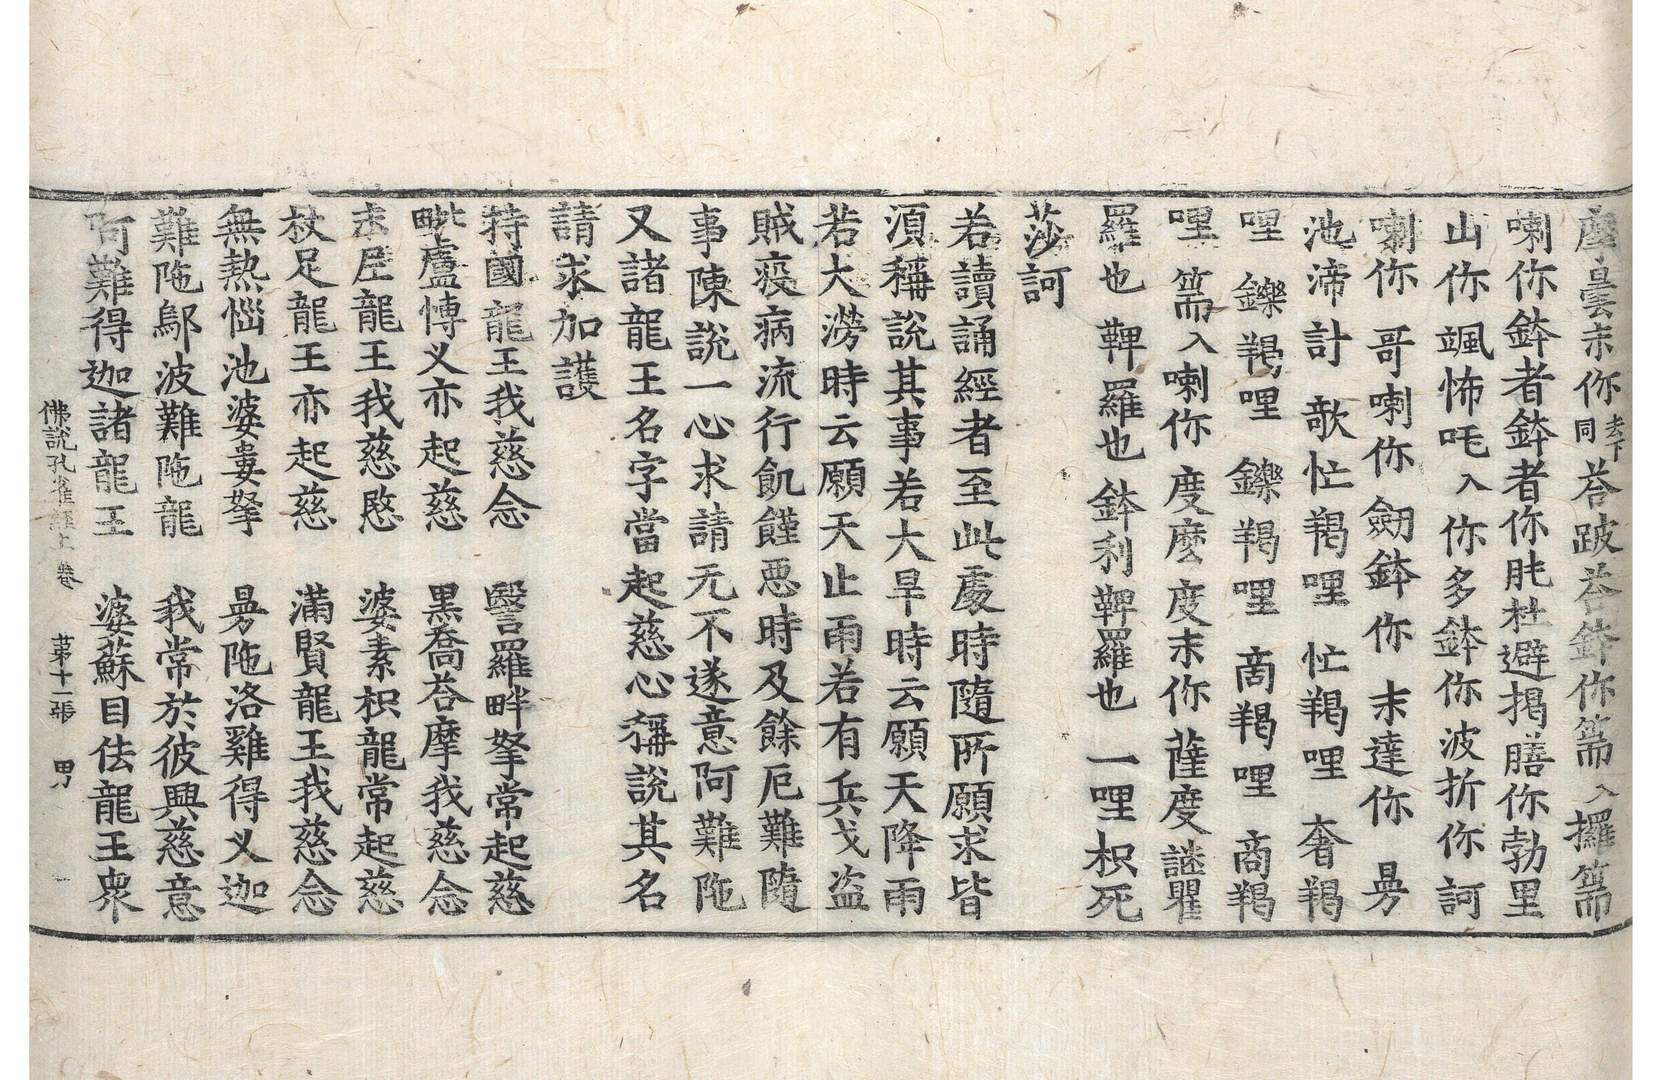 麽曇末你去下同荅跛荅鉢你篅入攞篅
喇你鉢者鉢者你肶杜避掲膳你勃里
山你颯怖吒入你多鉢你波折你訶
喇你 哥喇你 劒鉢你 末達你 曷
池滯計 歌忙羯哩 忙羯哩 奢羯
哩 鑠羯哩 鑠羯哩 商羯哩 商羯
哩 篅入喇你 度麽度末你 薩度謎瞿
羅也 鞞羅也 鉢利鞞羅也 一哩枳死
莎訶
若讀誦經者至此處時隨所願求皆
湏稱說其事若大旱時云願天降雨
若大澇時云願天止雨若有兵戈盗
賊疫病流行飢饉惡時及餘厄難隨
事陳說一心求請无不遂意阿難陁
又諸龍王名字當起慈心稱說其名
請求加護
持國龍王我慈念 醫羅畔拏常起慈
毗盧慱叉亦起慈 黒喬荅摩我慈念
末屋龍王我慈愍 婆素枳龍常起慈
杖足龍王亦起慈 滿賢龍王我慈念
無熱惱池婆婁拏 曷陁洛雞得叉迦
難陁鄔波難陁龍 我常於彼興慈意
阿難得迦諸龍王 婆蘇目佉龍王衆
佛說孔雀經上卷 苐十一張 男